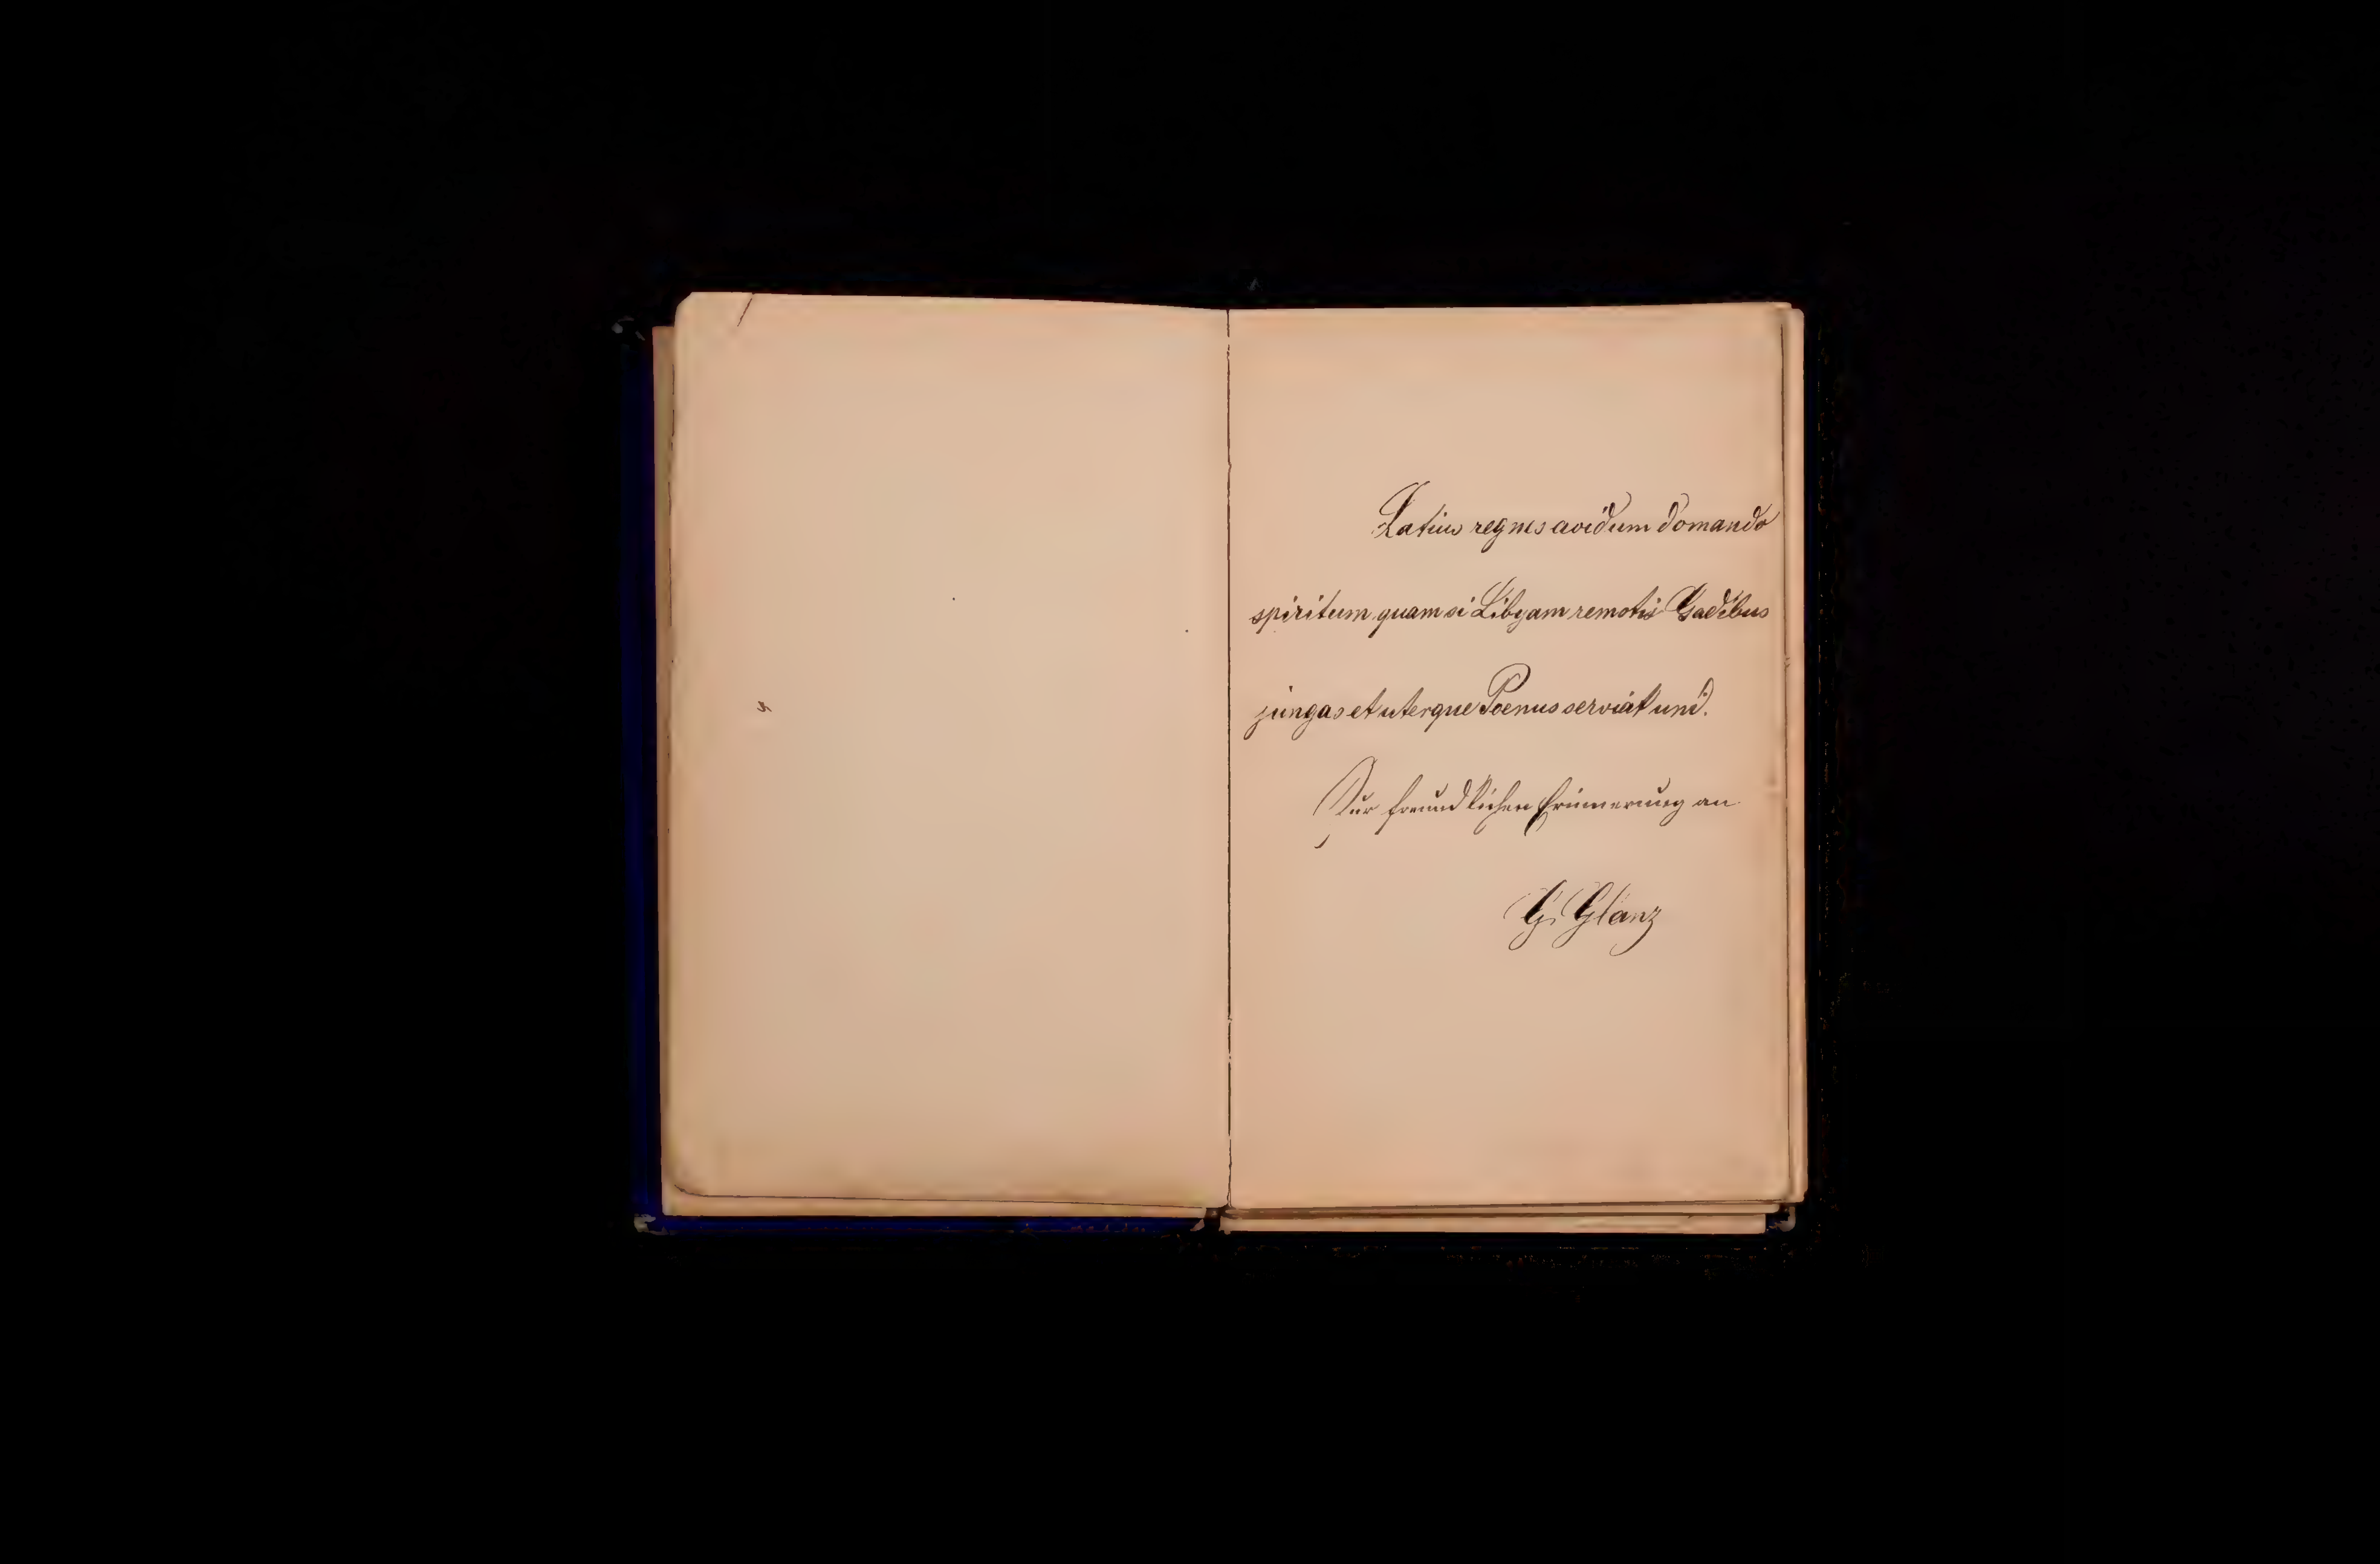 Latius regnes avidum domando
spiritum quam si Libyam remotis Gadibus
jungas et uterque Poenus serviat uni.
Zur freundlichen Erinnerung an
G. Glanz